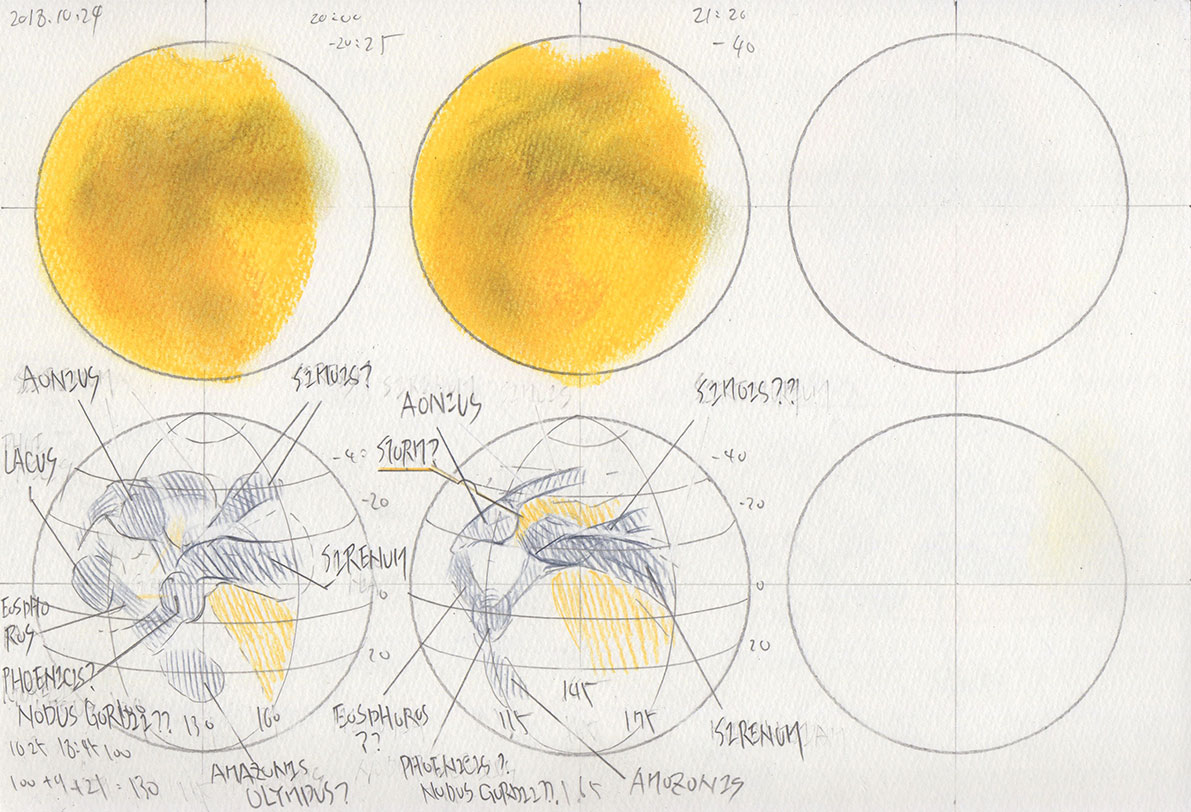 2018.10.24
20:00
-20:25
21:20
-40
AONIUS
SIMOIS?
LACUS
-20
SIRENUM
0
20
EOSPHO
RUS
PHOENICIS?
NODUS GORDII??
130
160
100+9+21=130
AMAZONIS
OLYMPUS?
AONIUS
STORM?
SIMOIS??
-40
-20
0
20
145
115
175
EOSPHORUS
??
SIRENUM
PHOENICIS?
NODUS GORDII??
AMOZONIS